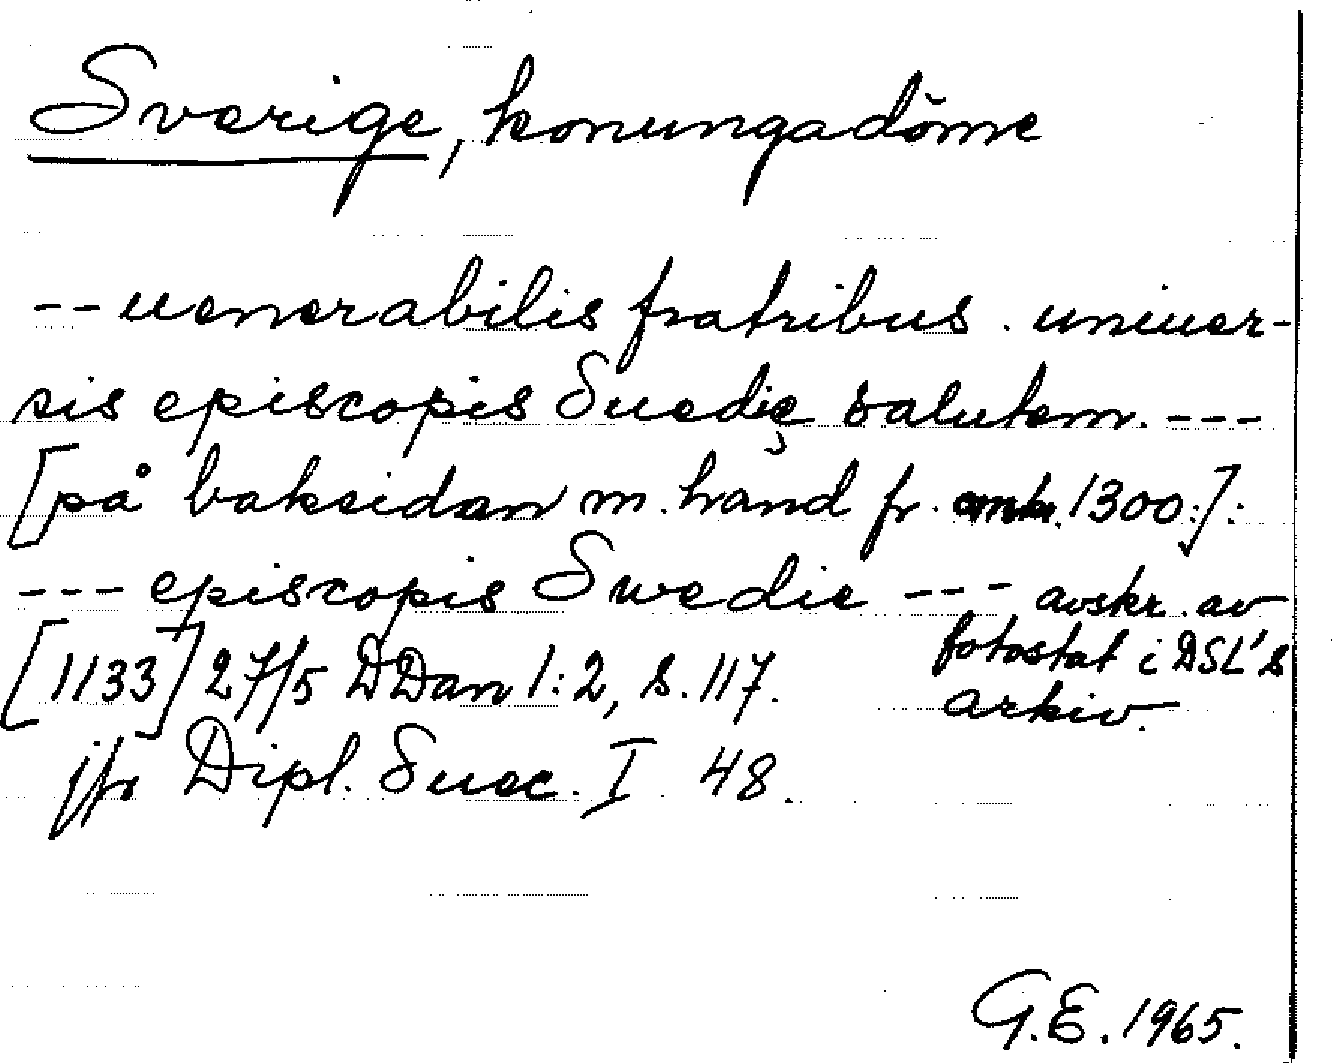 Sverige, konungadöme
-- uenerabilis fratribus. uniuer-
sis episcopis Suedię salutem. ---
[på baksidan m. hand fr. omkr. 1300:]:
--- episcopis Swedie --- avskr. av
fotostat i DSL's
arkiv.
[1133] 27/5 DDan 1:2, s. 117.
jfr Dipl. Suec. I 48.
G.E. 1965.